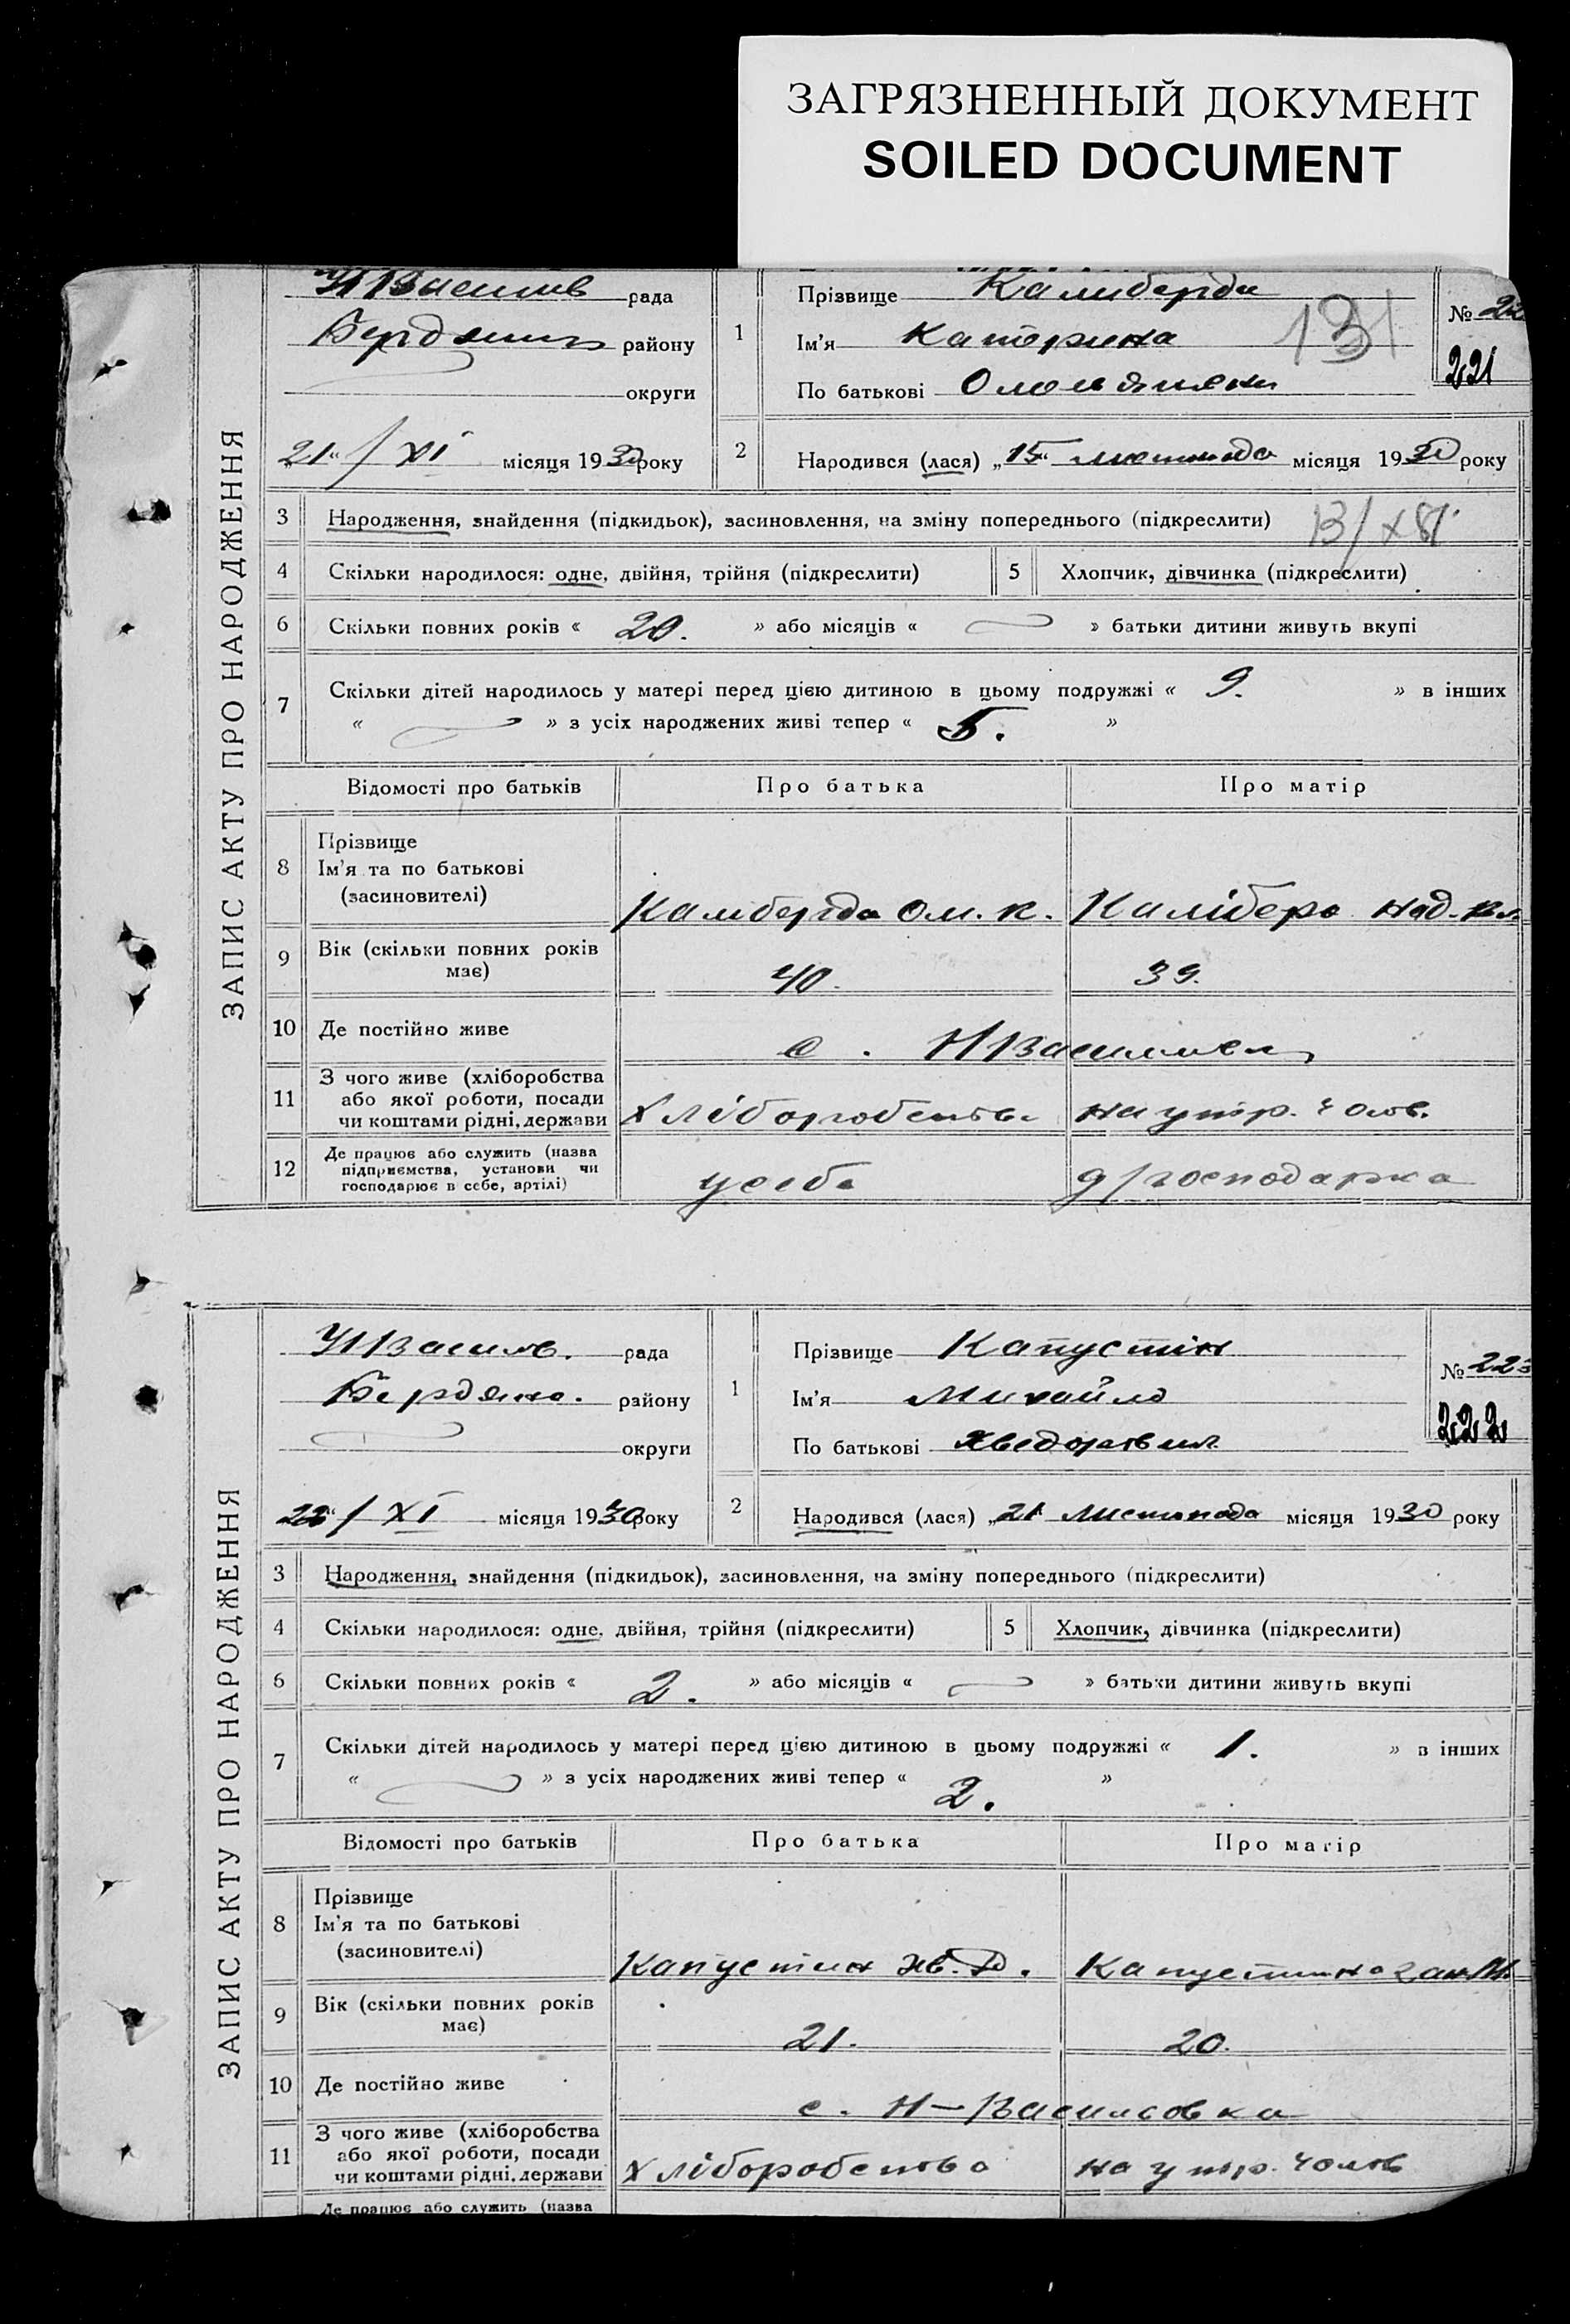 ЗАГРЯЗНЕННЫЙ ДОКУМЕНТ
SOILED DOCUMENT
ЗАПИС АКТУ ПРО НАРОДЖЕННЯ
рада
району
округи
21 / XI місяця 1930 року
1
Прізвище Калиберда
Ім'я Катерина
По батькові
131
№ 22
221
2
Народився (лася) „15“ листопада місяця 1930 року
3 Народження, знайдення (підкидьок), засиновлення, на зміну попереднього (підкреслити)
4 Скільки народилося: одне, двійня, трійня (підкреслити) 5 Хлопчик, дівчинка (підкреслити)
6 Скільки повних років « 20. » або місяців « » батьки дитини живуть вкупі
7 Скільки дітей народилось у матері перед цією дитиною в цьому подружжі « 9. » в інших
« » з усіх народжених живі тепер « 5. »
Відомості про батьків Про батька Про матір
8 Прізвище
Ім'я та по батькові
(засновителі)
Калиберда Ом. К. Калібера Над.
9 Вік (скільки повних років
має) 40. 39.
10 Де постійно живе с.
11 З чого живе (хліборобства
або якої роботи, посади
чи коштами рідні, держави
Хліборобство на утр. чолов.
12 Де працює або служить (назва
підприємства, установи чи
господарює в себе, артілі)
у себе д/господарка
ЗАПИС АКТУ ПРО НАРОДЖЕННЯ
Н Васила. рада
Бердянс. району
округи
22 / XI місяця 1930 року
1
Прізвище Капустін
Ім'я Михайло
По батькові Хведорович
№ 223
222
2
Народився (лася) „21“ листопада місяця 1930 року
3 Народження, знайдення (підкидьок), засиновлення, на зміну попереднього (підкреслити)
4 Скільки народилося: одне, двійня, трійня (підкреслити) 5 Хлопчик, дівчинка (підкреслити)
6 Скільки повних років « 2. » або місяців « » батьки дитини живуть вкупі
7 Скільки дітей народилось у матері перед цією дитиною в цьому подружжі « 1. » в інших
« » з усіх народжених живі тепер « 2. »
Відомості про батьків Про батька Про матір
8 Прізвище
Ім'я та по батькові
(засиновителі)
Капустин Хв. Капустина
9 Вік (скільки повних років
має) 21. 20.
10 Де постійно живе с. Н-Василовка
11 З чого живе (хліборобства
або якої роботи, посади
чи коштами рідні, держави
Хліборобство на утр. чолов
Де працює або служить (назва